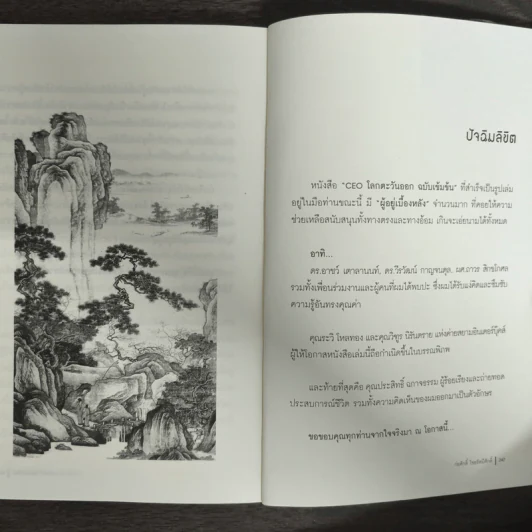 ปัจฉิมลิขิต
หนังสือ "CEO โลกตะวันออก ฉบับเข้มข้น" ที่สำเร็จเป็นรูปเล่ม
อยู่ในมือท่านขณะนี้ มี "ผู้อยู่เบื้องหลัง" จำนวนมาก ที่คอยให้ความ
ช่วยเหลือสนับสนุนทั้งทางตรงและทางอ้อม เกินจะเอ่ยนามได้ทั้งหมด
อาทิ...
ดร.อาชว์ เตาลานนท์, ดร.วีรวัฒน์ กาญจนดุล, ผศ.ถาวร
รวมทั้งเพื่อนร่วมงานและผู้คนที่ผมได้พบปะ ซึ่งผมได้รับแง่คิดและซึมซับ
ความรู้อันทรงคุณค่า
คุณระวี โหลทอง และคุณวิฑูร นิรันตราย แห่งค่ายสยามอินเตอร์บุ๊คส์
ผู้ให้โอกาสหนังสือเล่มนี้ถือกำเนิดขึ้นในบรรณพิภพ
และท้ายที่สุดคือ คุณประสิทธิ์ ฉกาจธรรม ผู้ร้อยเรียงและถ่ายทอด
ประสบการณ์ชีวิต รวมทั้งความคิดเห็นของผมออกมาเป็นตัวอักษร
ขอขอบคุณทุกท่านจากใจจริงมา ณ โอกาสนี้...